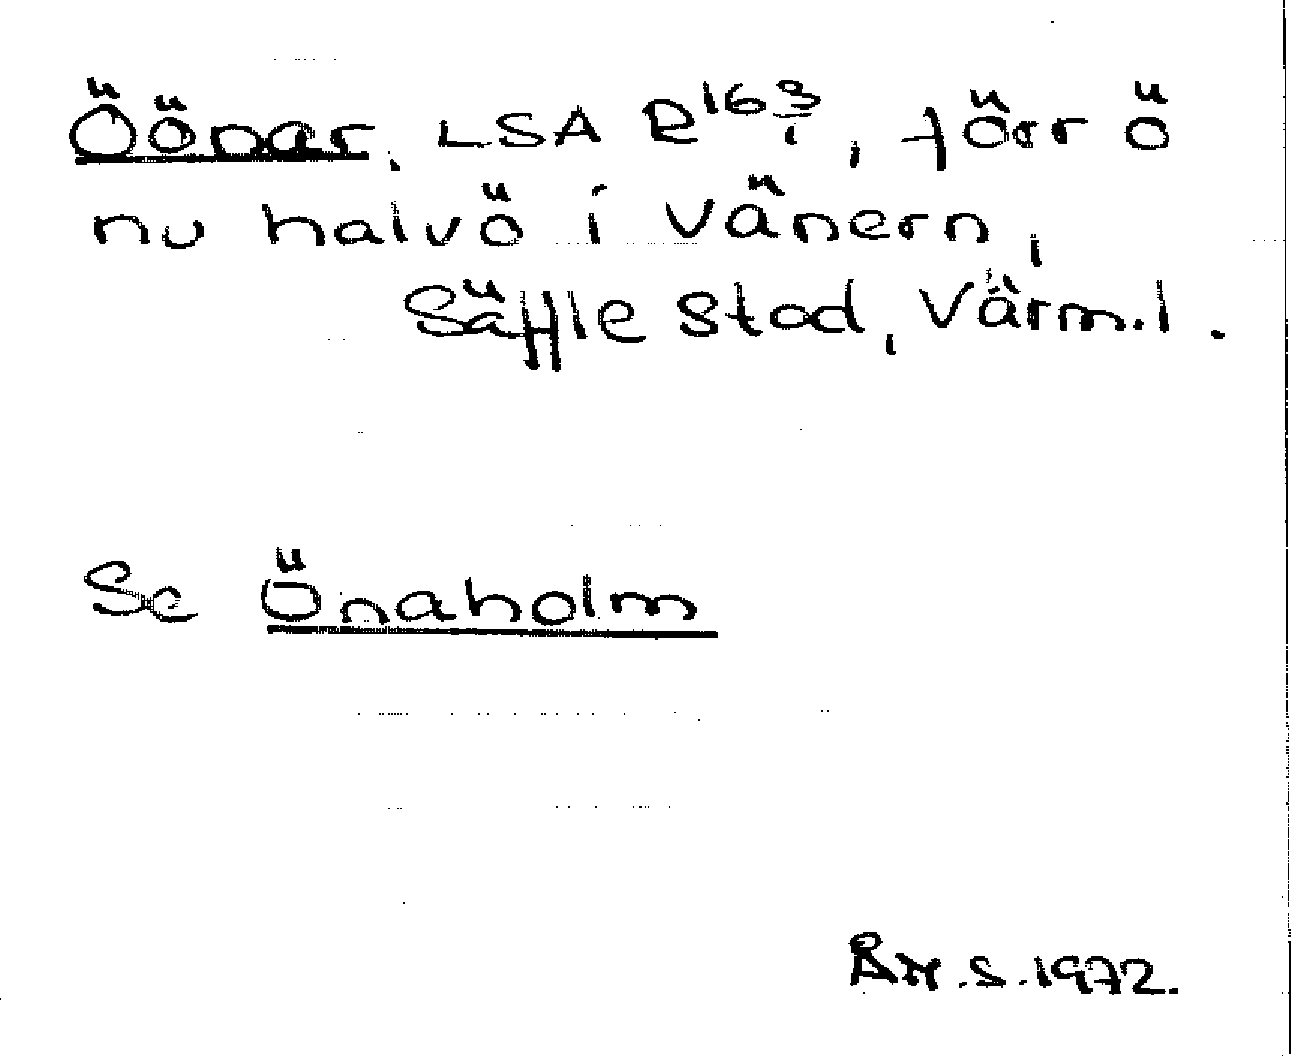 Öönar, LSA R 163/1, förr ö
nu halvö i Vänern,
Säffle stad, Värml.
Se Önaholm
S. 1972.